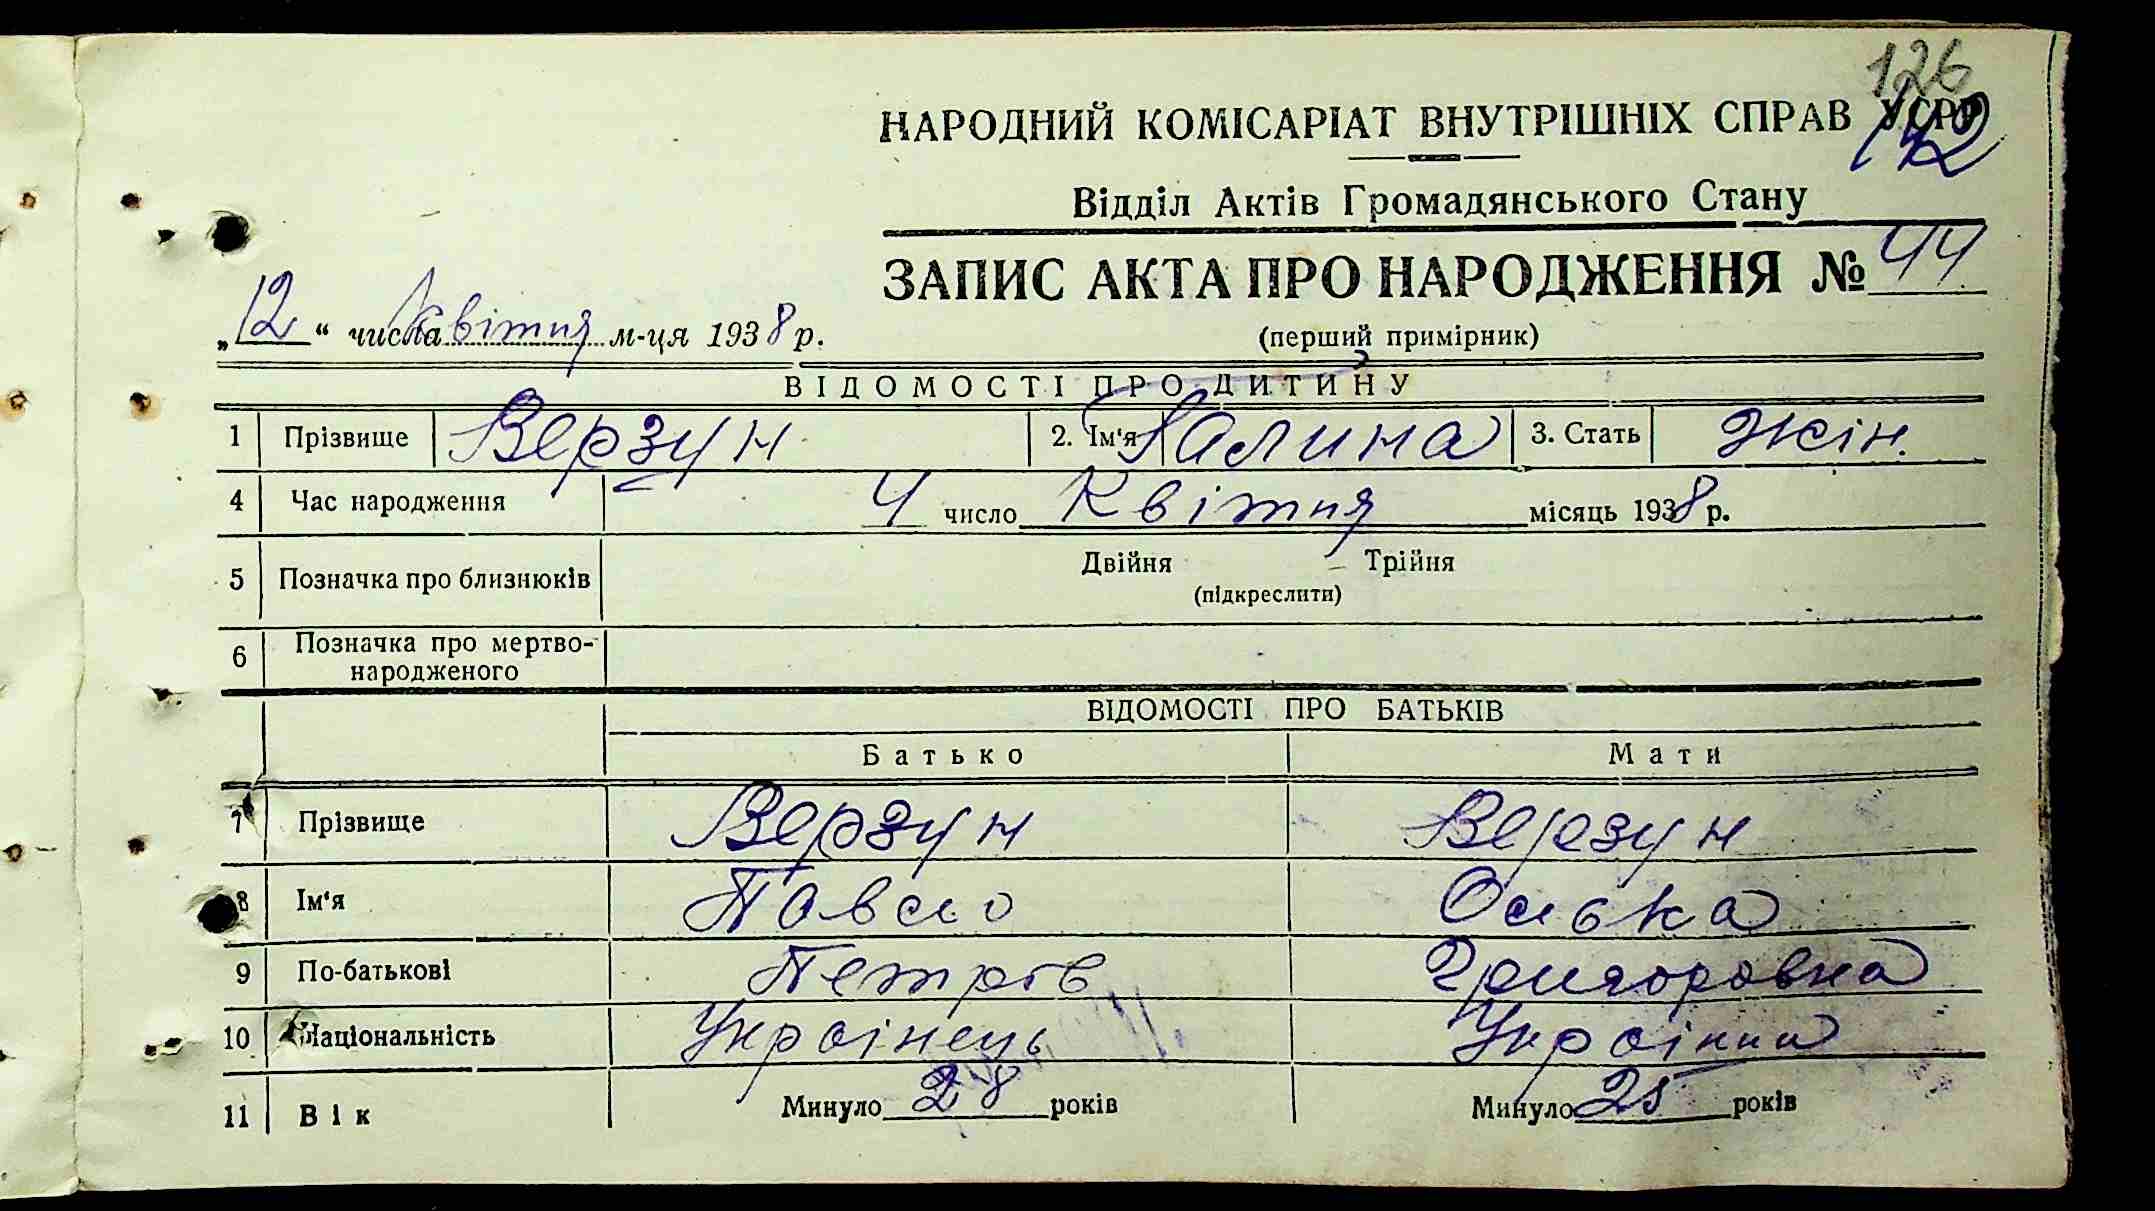 126
142
НАРОДНИЙ КОМІСАРІАТ ВНУТРІШНІХ СПРАВ УСРР
Відділ Актів Громадянського Стану
ЗАПИС АКТА ПРО НАРОДЖЕННЯ № 44
„12“ числа квітня м-ця 1938 р.
(перший примірник)
ВІДОМОСТІ ПРО ДИТИНУ
1 Прізвище Верзун 2. Ім'я Галина 3. Стать жін.
4 Час народження 4 число Квітня місяць 1938 р.
5 Позначка про близнюків Двійня – Трійня
(підкреслити)
6 Позначка про мертво-
народженого
ВІДОМОСТІ ПРО БАТЬКІВ
Батько Мати
7 Прізвище Верзун Верзун
8 Ім'я Павло Олька
9 По-батькові Петров Григоровна
10 Національність Українець Українка
11 Вік Минуло 28 років Минуло 25 років